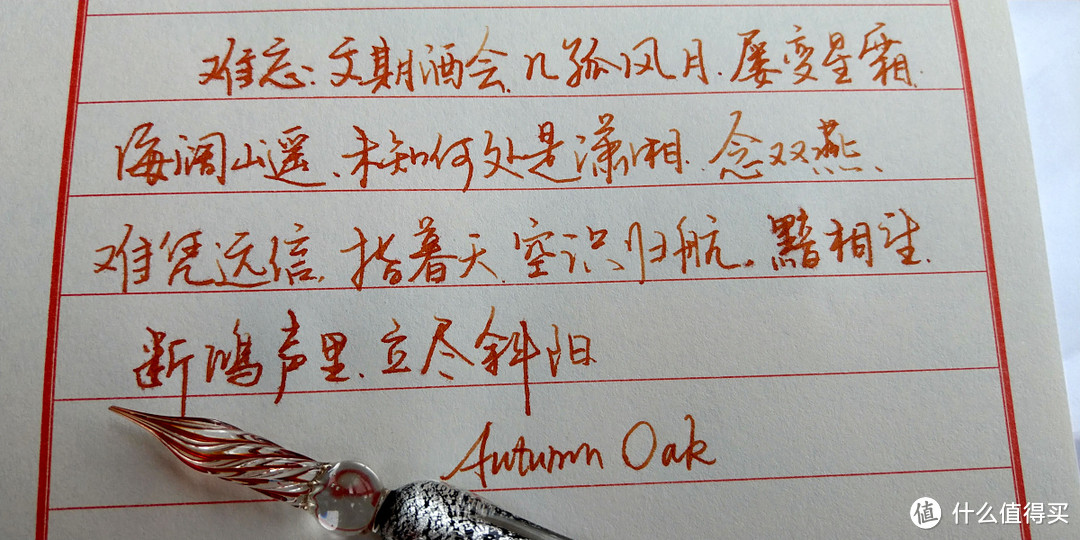 难忘.文期酒会.几孤风月.屡变星霜.
海阔山遥、未知何处是潇湘.念双燕、
难凭远信.指着天空识归航。黯相望.
断鸿声里.立尽斜阳
Autumn Oak
值 什么值得买